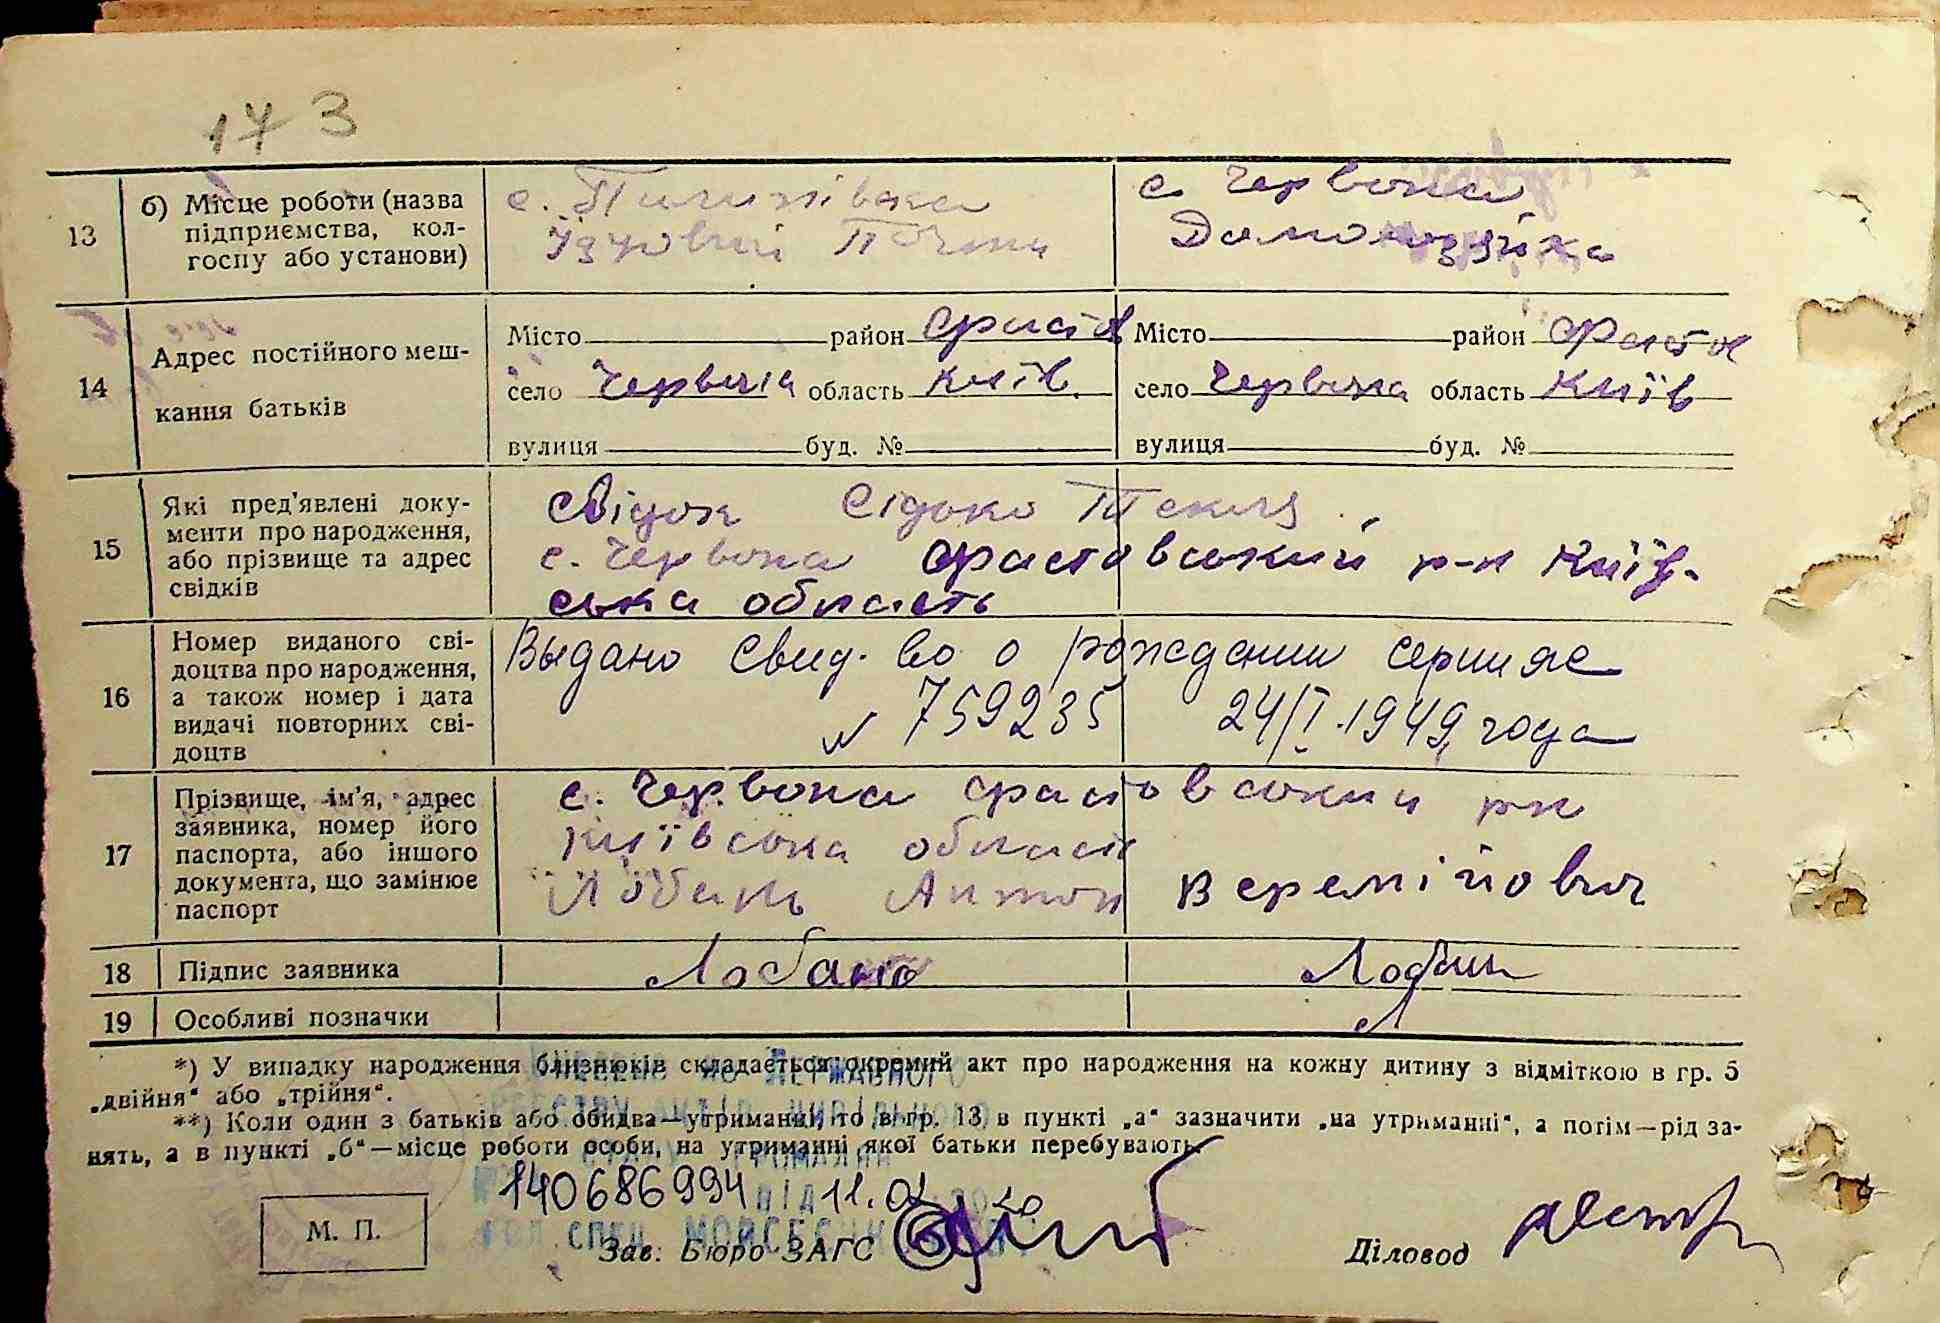 173
13
б) Місце роботи (назва
підприємства, кол-
госпу або установи)
с.
с. Червона
Домохозяйка
14
Адрес постійного меш-
кання батьків
Місто район Фастов Місто район Фастов
село Червона область Київ село Червона область Київ
вулиця буд. № вулиця буд. №
15
Які пред'явлені доку-
менти про народження,
або прізвище та адрес
свідків
Свідок Сідоко Текля
с. Червона Фастовський р-н Київ-
ська область
16
Номер виданого сві-
доцтва про народження,
а також номер і дата
видачі повторних сві-
доцтв
Выдано свид-во о рождении серии яс
N 759235 24/I-1949 года
17
Прізвище, ім'я, адрес
заявника, номер його
паспорта, або іншого
документа, що замінює
паспорт
с. Червона Фастовський рн
Київська область
Лобань Антон Веремійович
18
Підпис заявника
19
Особливі позначки
*) У випадку народження близнюків складається окремий акт про народження на кожну дитину з відміткою в гр. 5
„двійня“ або „трійня“.
**) Коли один з батьків або обидва—утриманці, то в гр. 13, в пункті „а“ зазначити „на утриманні“, а потім—рід за-
нять, а в пункті „б“—місце роботи особи, на утриманні якої батьки перебувають.
ДЕРЖАВНОГО
РЕЄСТРУ АКТІВ ЦИВІЛЬНОГО
СТАНУ ГРОМАДЯН
140686994 ВІД 11.02.2020
ГОЛ. СПЕЦ. МОЙСЕЄНКО
М. П.
Зав. Бюро ЗАГС
Діловод